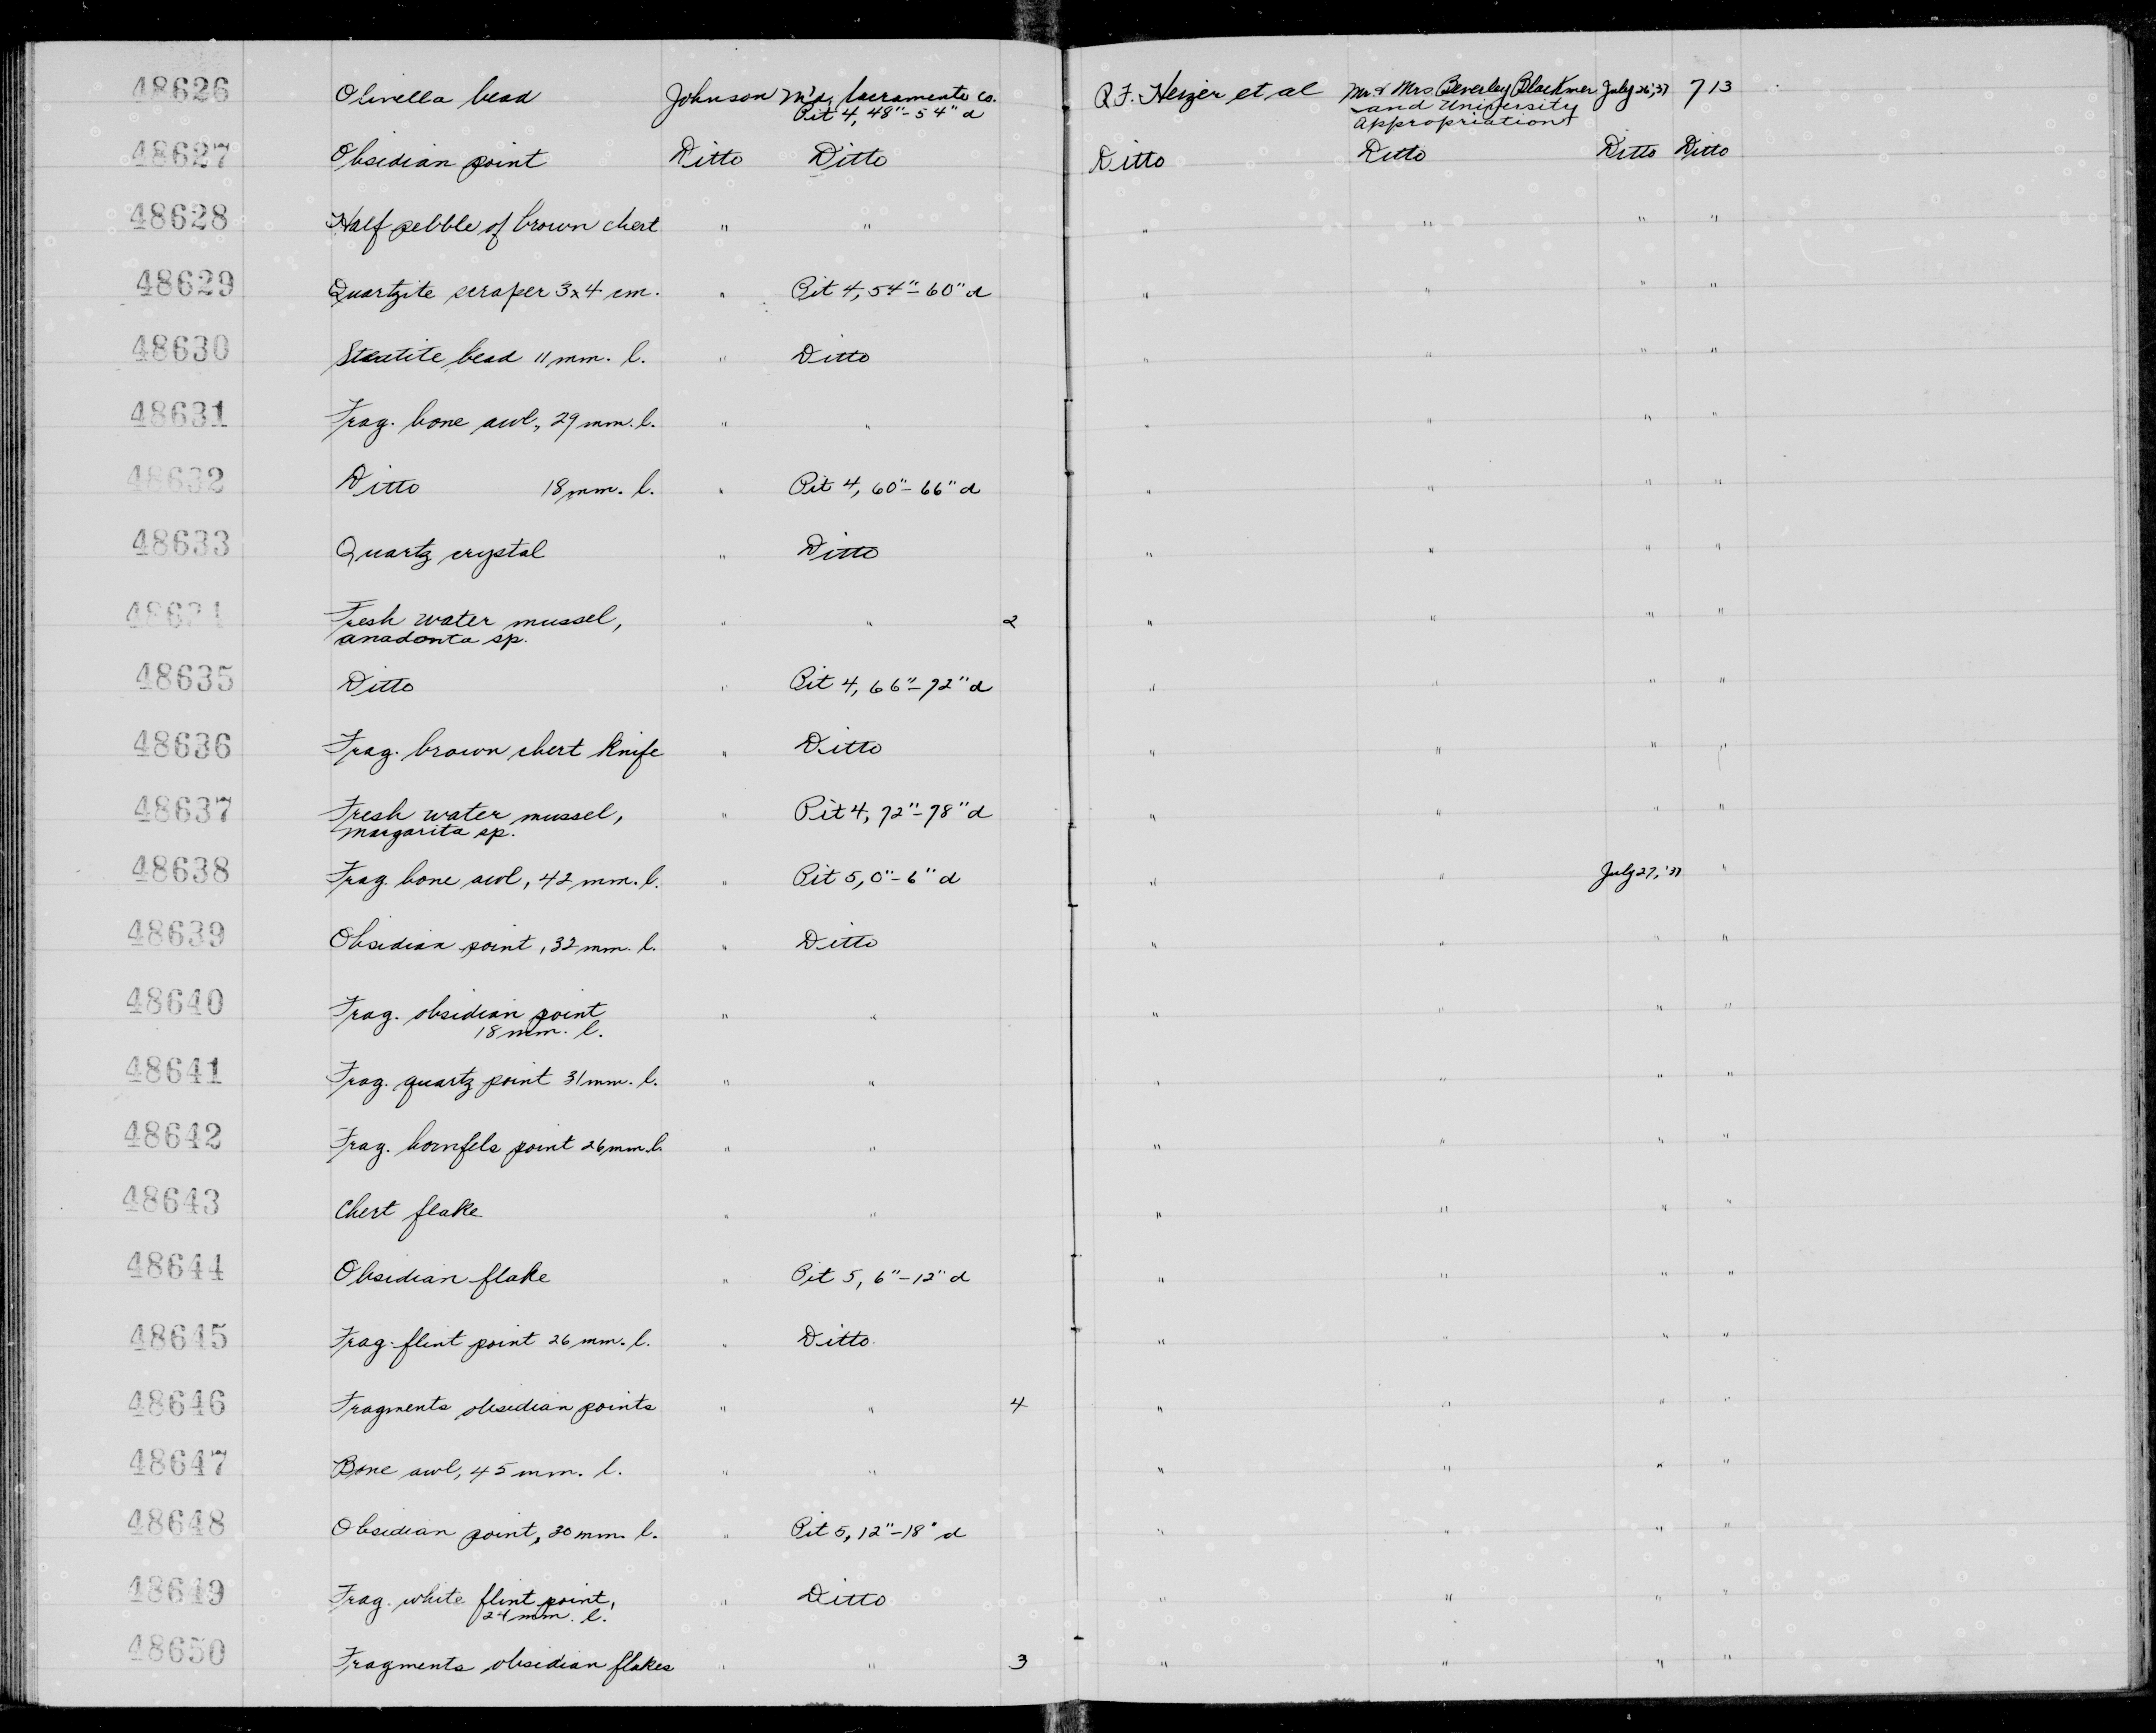 48626 Olivella bead Johnson M'd, Sacramento Co. R.F. Heizer et al Mr. & Mrs Beverley Blackmer July 26, '37 713
Pit 4, 48"-54" d and University
Appropriation
48627 Obsidian point Ditto Ditto Ditto Ditto Ditto Ditto
48628 Half pebble of brown chert " " " " " "
48629 Quartzite scraper 3x4 cm. " Pit 4, 54"-60" d " " " "
48630 Steatite bead 11 mm. l. " Ditto " " " "
48631 Frag. bone awl, 29 mm. l. " " " " " "
48632 Ditto 18 mm. l. " Pit 4, 60"-66" d " " " "
48633 Quartz crystal " Ditto " " " "
48634 Fresh water mussel, " " 2 " " " "
anadonta sp.
48635 Ditto " Pit 4, 66"-72" d " " " "
48636 Frag. brown chert knife " Ditto " " " "
48637 Fresh water mussel, " Pit 4, 72"-78" d " " " "
margarita sp.
48638 Frag. bone awl, 42 mm. l. " Pit 5, 0"-6" d " " July 27, '37 "
48639 Obsidian point, 32 mm. l. " Ditto " " " "
48640 Frag. obsidian point " " " " " "
18 mm. l.
48641 Frag. quartz point 31 mm. l. " " " " " "
48642 Frag. hornfels point 26 mm. l. " " " " " "
48643 Chert flake " " " " " "
48644 Obsidian flake " Pit 5, 6"-12" d " " " "
48645 Frag. flint point 26 mm. l. " Ditto " " " "
48646 Fragments obsidian points " " 4 " " " "
48647 Bone awl, 45 mm. l. " " " " " "
48648 Obsidian point, 30 mm. l. " Pit 5, 12"-18" d " " " "
48649 Frag. white flint point, " Ditto " " " "
24 mm. l.
48650 Fragments obsidian flakes " " 3 " " " "